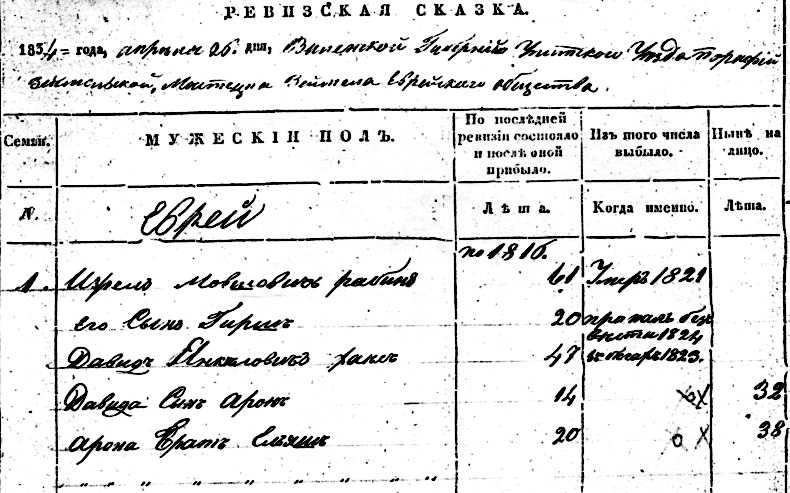 РЕВИЗСКАЯ СКАЗКА.
1834 = года, апреля 26. дня, Виленской Губернiи Уезда
Местечка Еврейского общества.
Семьи. МУЖЕСКIИ ПОЛЪ. По послѣдней ревизiи состояло и послѣ оной прибыло. Изъ того числа выбыло. Нынѣ на лицо.
N. Еврей Лѣта. Когда именно. Лѣта.
по 1816.
1. Мовшовичъ 61 Умеръ 1821
его Сынъ Гиршъ 20 пропалъ безъ вести 1824
Давидъ Янкеловичъ 47 1823.
Давида Сынъ Аронъ 14 32
Арона Братъ Ельяшъ 20 38